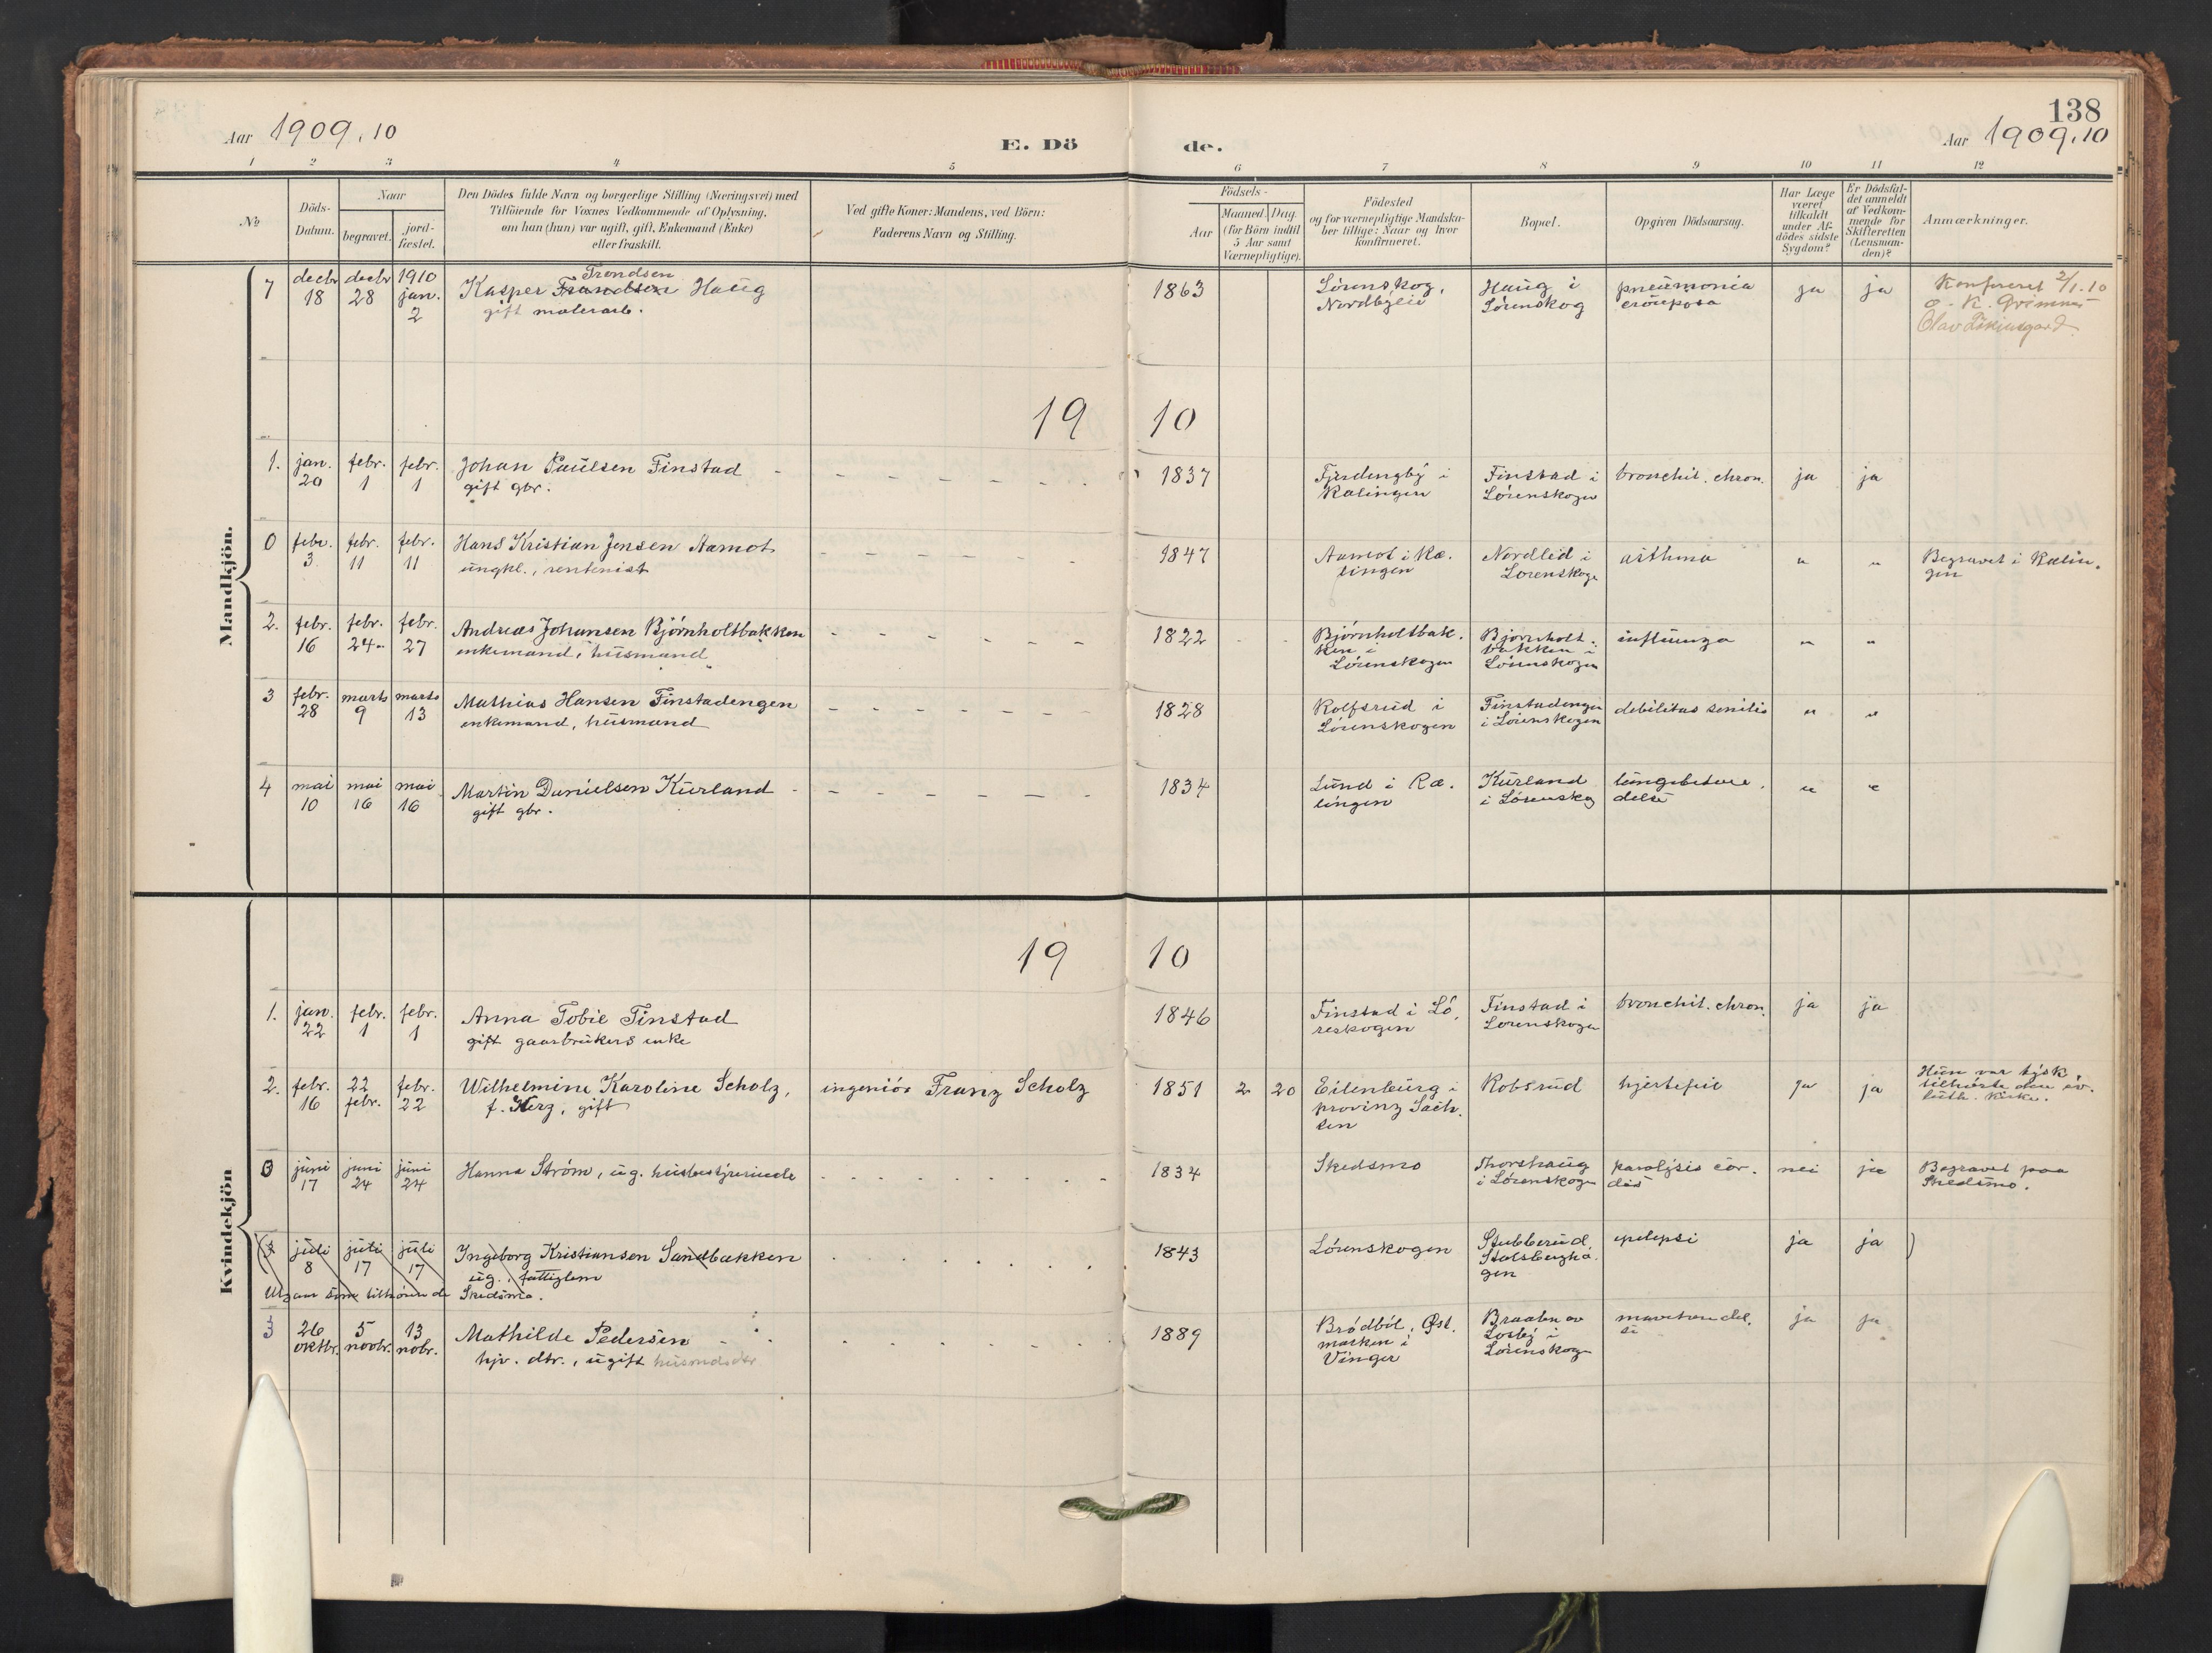 138
Aar 1909.10
E. Dö
de.
Aar 1909.10
1 2 3 4 5 6 7 8 9 10 11 12
№
Döds-
Datum.
Naar
begravet.
jord-
fæstet.
Den Dödes fulde Navn og borgerlige Stilling (Næringsvei) med
Tilföiende for Voxnes Vedkommende af Oplysning,
om han (hun) var ugift, gift, Enkemand (Enke)
eller fraskilt.
Ved gifte Koner: Mandens, ved Börn:
Faderens Navn og Stilling.
Födsels-
Aar
Maaned. Dag.
(for Börn indtil
5 Aar samt
Værnepligtige).
Födested
og for værnepligtige Mandska-
ber tillige: Naar og hvor
konfirmeret.
Bopæl.
Opgiven Dödsaarsag.
Har Læge
været
tilkaldt
under Af-
dödes sidste
Sygdom?
Er Dödsfal-
det anmeldt
af Vedkom-
mende for
Skifteretten
(Lensman-
den)?
Anmærkninger.
Mandkjön.
7
decbr
18
decbr
28
1910
jan.
2
Trondsen
Kasper Frandsen Haug
gift malerarb.
1863
Lørenskog,
Nordbyeie
Haug i
Lørenskog
pneumonia
crouposa
ja
ja
Konfereret 2/1.10
19 10
1.
jan.
20
febr.
1
febr.
1
Johan Paulsen Finstad
gift gbr.
1837
Fjerdingby i
Rælingen
Finstad i
Lørenskogen
bronchit. chron.
ja
ja
0
febr.
3
febr.
11
febr.
11
Hans Kristian Jensen Aamot
ungkl., rentenist
1847
Aamot i Ræ.
lingen
Nordlid i
Lørenskoge
asthma
"
"
Begravet i Rælin.
gen
2.
febr.
16
febr.
24
febr.
27
Andreas Johansen Bjørnholtbakken
enkemand, husmand
1822
Bjørnholtbak.
ken i
Lørenskogen
Bjørnholt.
bakken i
Lørenskogen
influenza
"
"
3
febr.
28
marts
9
marts
13
Mathias Hansen Finstadengen
enkemand, husmand
1828
Rolfsrud i
Lørenskogen
Finstadengen
i Lørenskogen
debilitas senilis
"
"
4
mai
10
mai
16
mai
16
Martin Danielsen Kurland
gift gbr.
1834
Lund i Ræ.
lingen
Kurland
i Lørenskog
lungebetæn.
delse
"
"
Kvindekjön
19 10
1.
jan.
22
febr.
1
febr.
1
Anna Tobie Finstad
gift gaarbrukers enke
1846
Finstad i Lø.
reskogen
Finstad i
Lørenskogen
bronchit. chron.
ja
ja
2.
febr.
16
22
febr.
febr.
22
Wilhelmine Karoline Scholz,
f. Herz, gift
ingeniør Franz Scholz
1851 2 20
Eilenburg i
provinz Sach.
sen
Robsrud
hjertefeil
ja
ja
Hun var tysk
tilhørte den ev.
luth. kirke.
0
juni
17
juni
24
juni
24
Hanna Strøm, ug. husbestyrerinde
1834
Skedsmo
Thorshaug
i Lørenskogen
paralysis cor.
dis
nei
ja
Begravet paa
Skedsmo.
3
juli
8
juli
17
juli
17
Ingeborg Kristiansen Sandbakken
ug., fattiglem
som tilhørende Skedsmo.
1843
Lørenskogen
Stubberud,
Stalsberghа.
gen
epelepsi
ja
ja
3
26
oktbr.
5
novbr.
13
nobr.
Mathilde Pedersen
hjv. dtr., ugift husmdsdtr
1889
Brødbøl, Øst.
marken i
Vinger
Braaten av
Losby i
Lørenskog
ja
ja